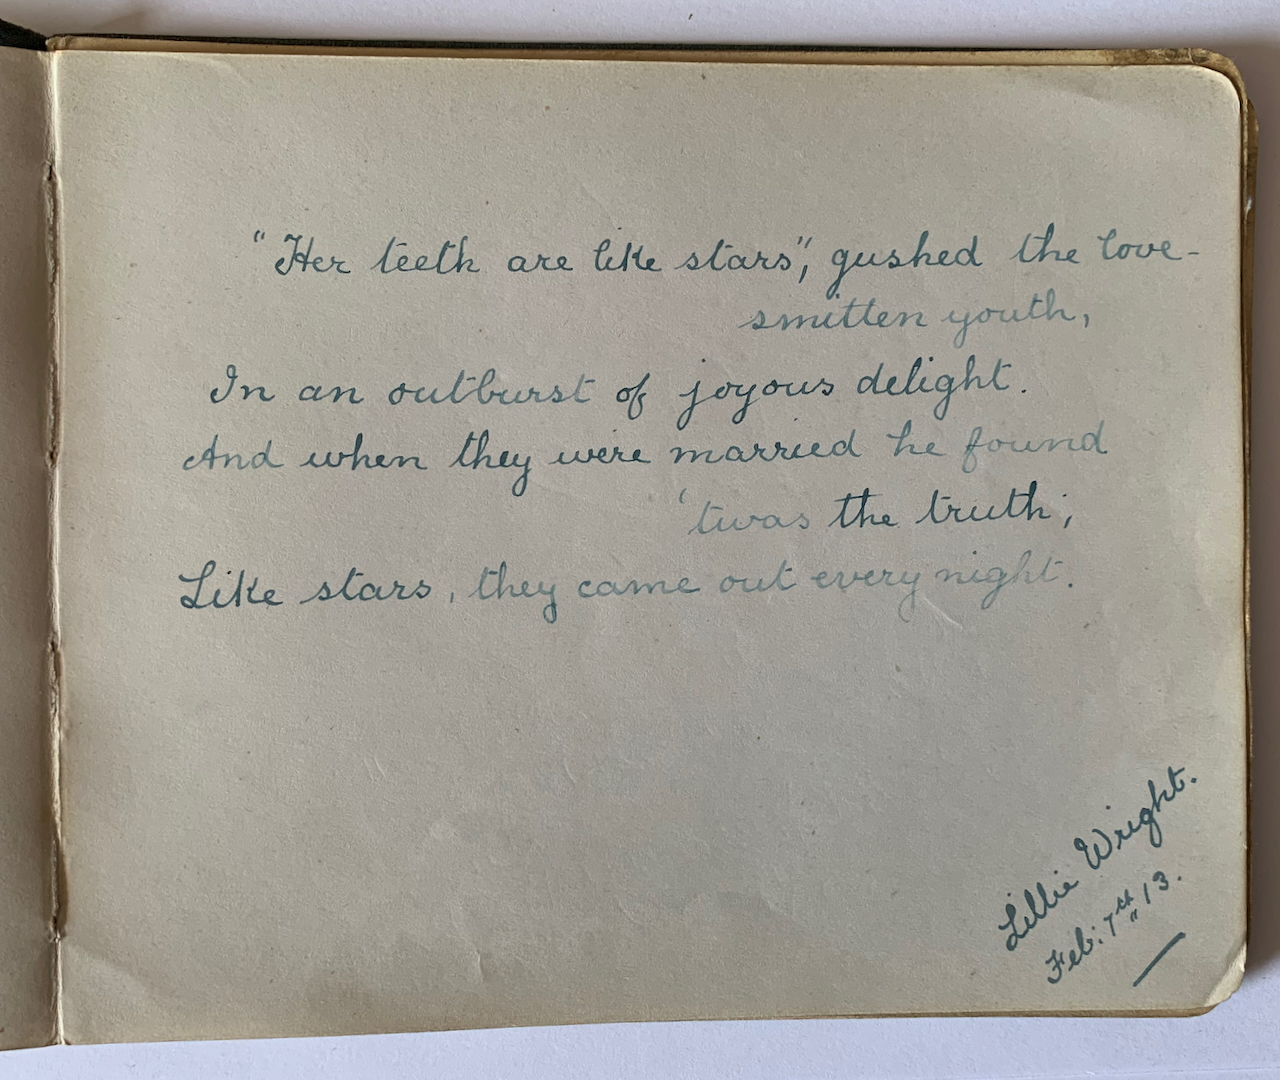 "Her teeth are like stars", gushed the love-
smitten youth,
In an outburst of joyous delight.
And when they were married he found
'twas the truth;
Like stars, they came out every night.
Lillie Wright.
Feb: 7th 13.